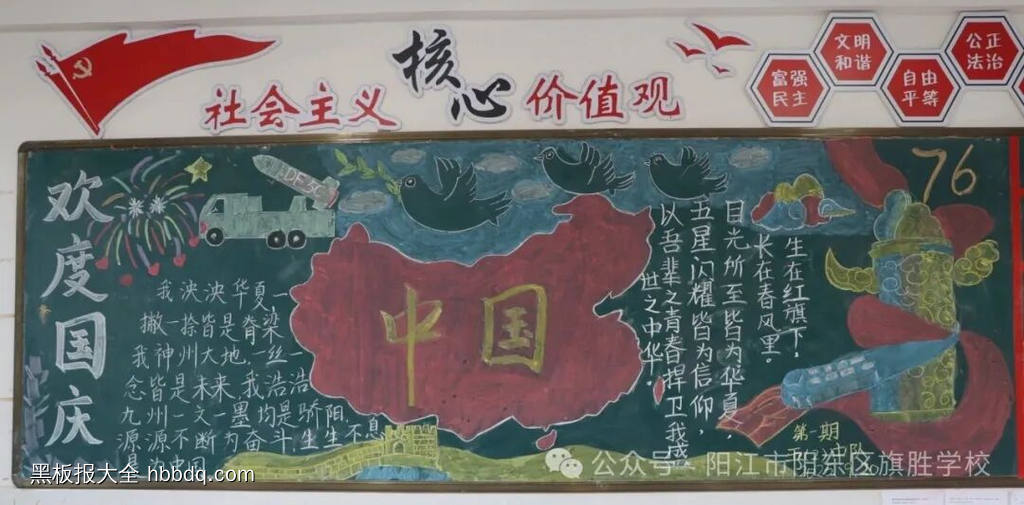 社会主义
核心
价值观
富强
民主
文明
和谐
自由
平等
公正
法治
欢度国庆
DF-5C
76
中国
我泱泱华夏一
撇一捺皆是脊梁
我神州大地一丝一
念皆是未来,我浩浩
九州一文一墨均是骄阳
源源不断为奋斗生生不息
生在红旗下,
长在春风里
目光所至皆为华夏,
五星闪耀皆为信仰,
以吾辈之青春捍卫我盛
世之中华。
第一期
中队
黑板报大全-hbbdq.com
公众号
阳江市阳东区旗胜学校